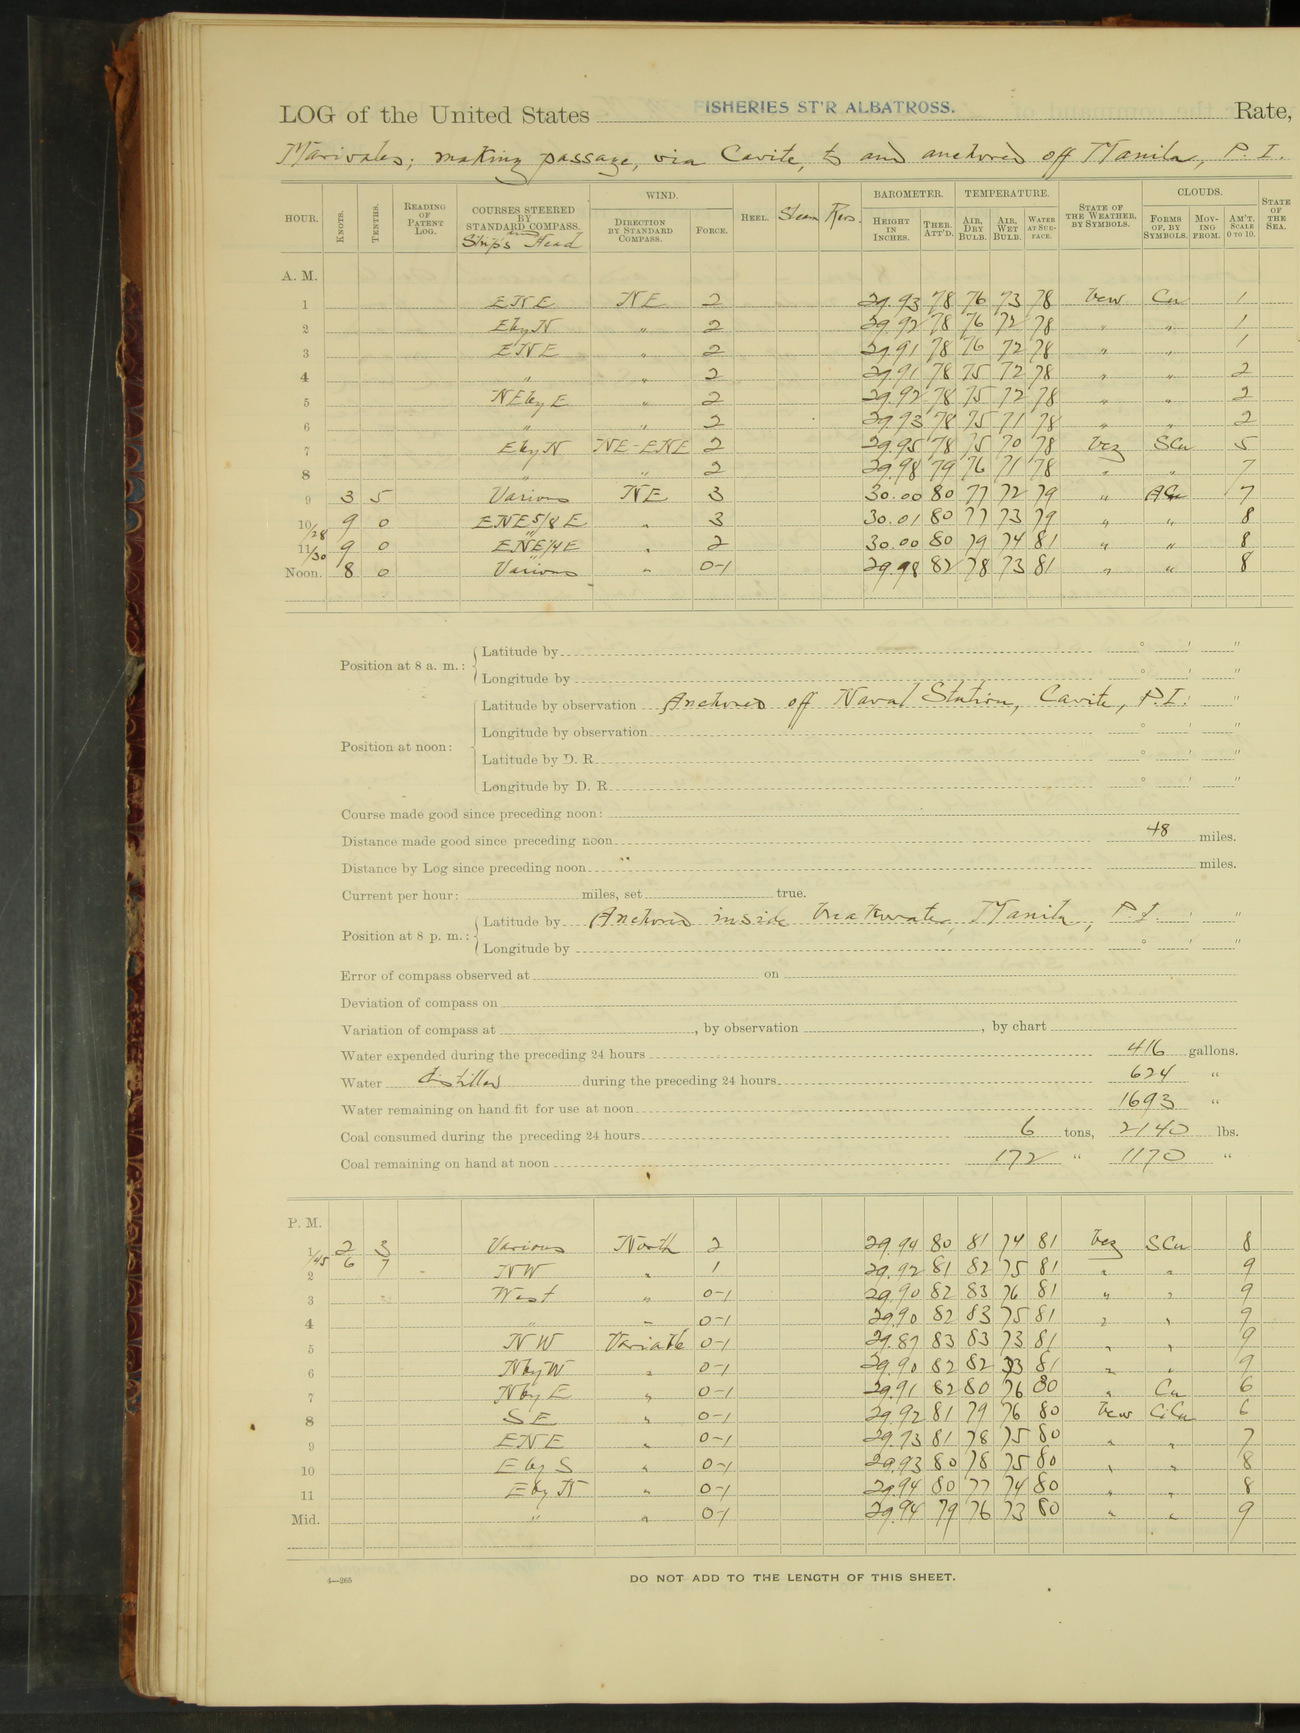 LOG of the United States FISHERIES ST'R ALBATROSS. Rate,
Marivales; making passage, via Cavite, to and anchored off Manila, P. I.
HOUR. KNOTS. TENTHS. READING OF PATENT LOG. COURSES STEERED BY STANDARD COMPASS. and Ship's Head WIND. DIRECTION BY STANDARD COMPASS. FORCE. HEEL. Steam Revs. BAROMETER. HEIGHT IN INCHES. THER. ATT'D. TEMPERATURE. AIR, DRY BULB. AIR, WET BULB. WATER AT SURFACE. STATE OF THE WEATHER, BY SYMBOLS. CLOUDS. FORMS OF, BY SYMBOLS. MOVING FROM. AM'T. SCALE 0 TO 10. STATE OF THE SEA.
A. M.
1 ENE NE 2 29.93 78 76 73 78 bcw Cu 1
2 EbyN " 2 29.92 78 76 72 78 " " 1
3 ENE " 2 29.91 78 76 72 78 " " 1
4 " " 2 29.91 78 75 72 78 " " 2
5 NEbyE " 2 29.92 78 75 72 78 " " 2
6 " " 2 29.93 78 75 71 78 " " 2
7 EbyN NE-ENE 2 29.95 78 75 70 78 bcz SCu 5
8 " " 2 29.98 79 76 71 78 " " 7
9 3 5 Various NE 3 30.00 80 77 72 79 " ACu 7
10/28 9 0 ENE 5/8 E " 3 30.01 80 77 73 79 " " 8
11/30 9 0 ENE 1/4 E " 2 30.00 80 79 74 81 " " 8
Noon. 8 0 Various " 0-1 29.98 82 78 73 81 " " 8
Position at 8 a. m.: Latitude by ° ' "
Longitude by ° ' "
Position at noon: Latitude by observation Anchored off Naval Station, Cavite, P.I. "
Longitude by observation ° ' "
Latitude by D. R. ° ' "
Longitude by D. R. ° ' "
Course made good since preceding noon:
Distance made good since preceding noon 48 miles.
Distance by Log since preceding noon miles.
Current per hour: miles, set true.
Position at 8 p. m.: Latitude by Anchored inside breakwater, Manila, P I. ' "
Longitude by ° ' "
Error of compass observed at on
Deviation of compass on
Variation of compass at , by observation , by chart
Water expended during the preceding 24 hours 416 gallons.
Water distilled during the preceding 24 hours 624 "
Water remaining on hand fit for use at noon 1693 "
Coal consumed during the preceding 24 hours 6 tons, 2140 lbs.
Coal remaining on hand at noon 172 " 1170 "
P. M.
1/45 2 3 Various North 2 29.94 80 81 74 81 bcz SCu 8
2 6 7 NW " 1 29.92 81 82 75 81 " " 9
3 West " 0-1 29.90 82 83 76 81 " " 9
4 " " 0-1 29.90 82 83 75 81 " " 9
5 NW Variable 0-1 29.87 83 83 73 81 " " 9
6 NbyW " 0-1 29.90 82 82 73 81 " " 9
7 NbyE " 0-1 29.91 82 80 76 80 " Cu 6
8 SE " 0-1 29.92 81 79 76 80 bcw CiCu 6
9 ENE " 0-1 29.93 81 78 75 80 " " 7
10 E by S " 0-1 29.93 80 78 75 80 " " 8
11 E by N " 0-1 29.94 80 77 74 80 " " 8
Mid. " " 0-1 29.94 79 76 73 80 " " 9
4—265 DO NOT ADD TO THE LENGTH OF THIS SHEET.